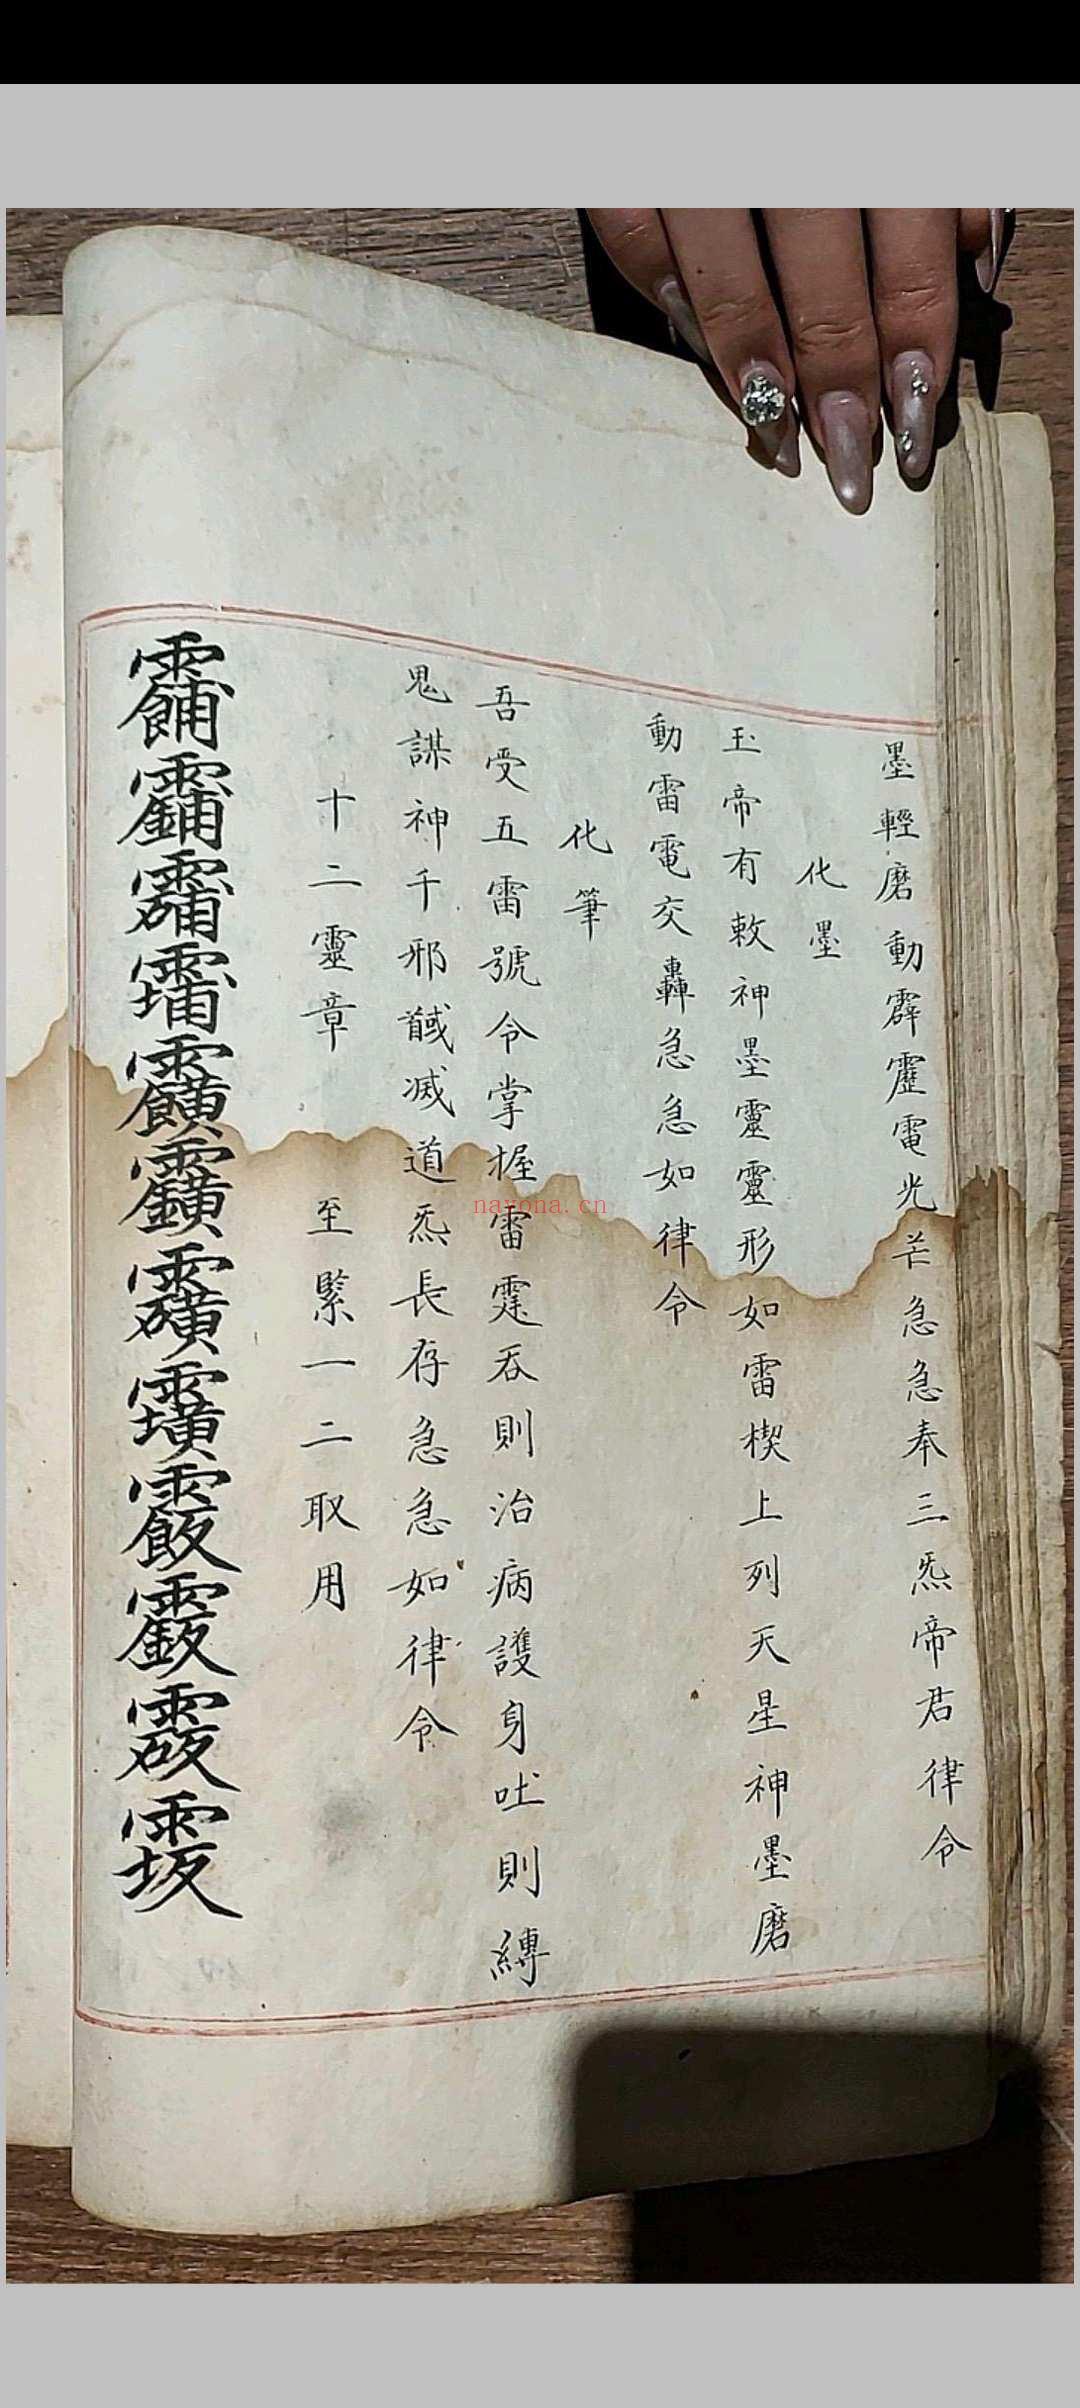 墨輕磨動霹靂電光芒急急奉三炁帝君律令
化墨
玉帝有敕神墨靈靈形如雷楔上列天星神墨磨
動雷電交轟急急如律令
化筆
吾受五雷號令掌握雷霆吞則治病護身吐則縛
鬼謀神千邪馘滅道炁長存急急如律令
十二靈章 至緊一二取用
nayona.cn